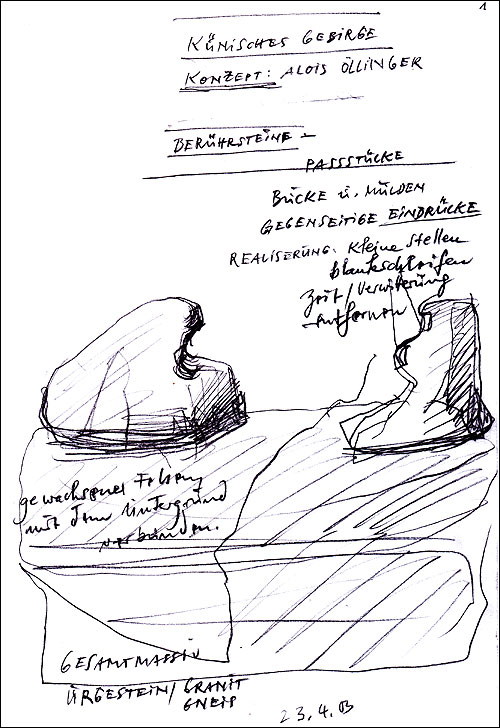 1
KÜNISCHES GEBIRGE
KONZEPT: ALOIS ÖLLINGER
BERÜHRSTEINE –
PASSSTÜCKE
BUCKE u. MULDEN
GEGENSEITIGE EINDRÜCKE
REALISERUNG: Kleine Stellen
blankschleifen
Zeit/Verwitterung
entfernen
gewachsener Felsen
mit dem Untergrund
verbunden.
GESAMTMASSIV
URGESTEIN/GRANIT
GNEIS
23.4.03